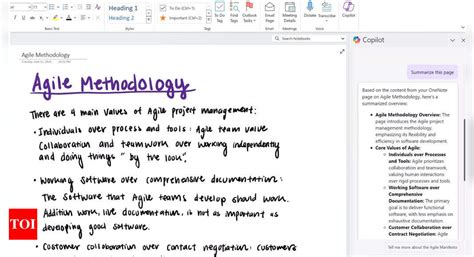 Heading 1
Heading 2
To Do (Ctrl+1)
Important (Ctrl+2)
To Do Tag
Find Tags
Outlook Tasks
Dictate
Copilot
Search Notebooks
Agile Methodology
Copilot
Summarize this page
Agile Methodology
There are 4 main values of Agile project management:
• Individuals over process and tools: Agile team value
Collaboration and teamwork over working independently
and doing things "by the book".
• Working Software over comprehensive documentation:
The software that Agile teams develop should work.
Addition work, like documentation, is not as important as
developing good software.
• Customer collaboration over contact negotiation: customers
TOI
Based on the content from your OneNote
page on Agile Methodology, here's a
summarized overview:
• Agile Methodology Overview: The
page introduces the Agile project
management methodology,
emphasizing its flexibility and
efficiency in software development.
• Core Values of Agile:
Individuals over Processes
and Tools: Agile prioritizes
collaboration and teamwork,
valuing human interactions
over rigid processes and tools.
Working Software over
Comprehensive
Documentation: The primary
goal is to deliver functional
software, with less emphasis on
exhaustive documentation.
Customer Collaboration over
Contract Negotiation: Agile
Tell me more about the Agile Manifesto